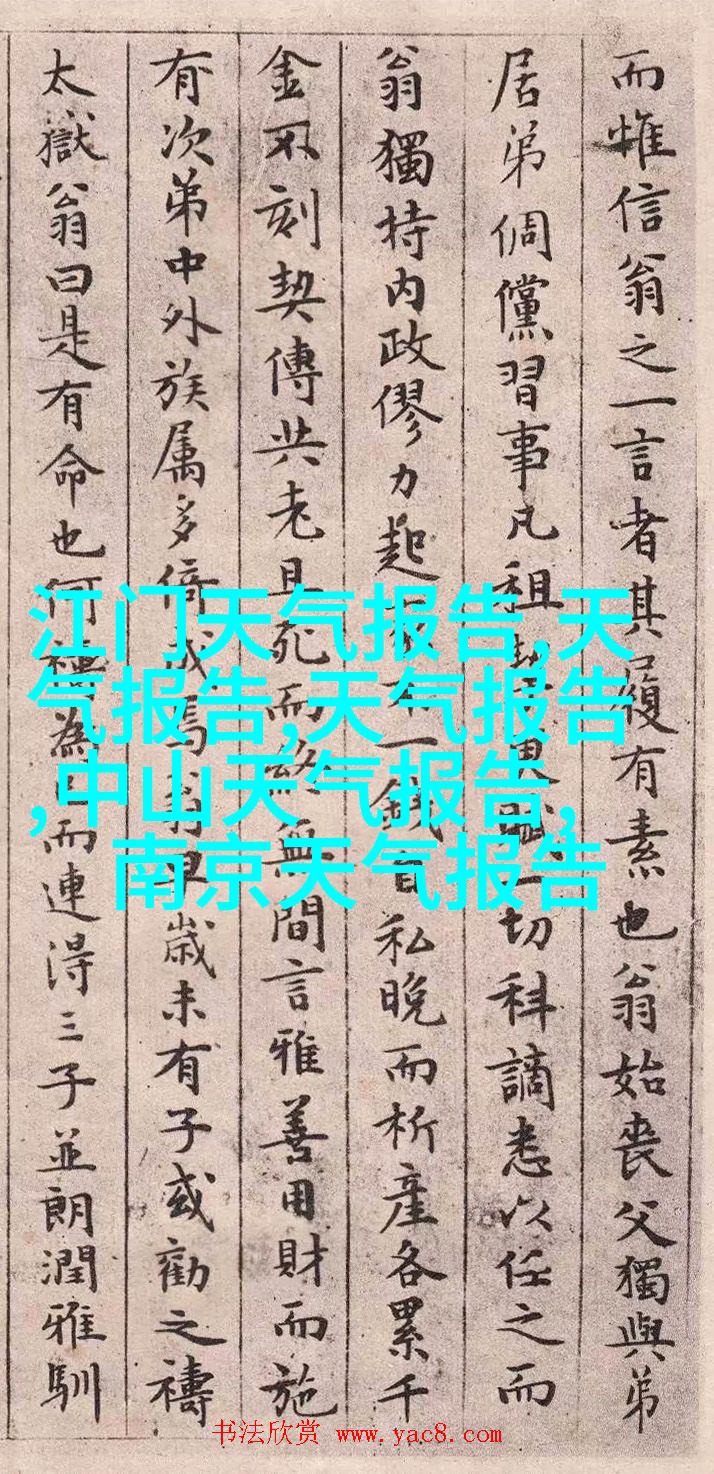 而惟信翁之一言者其履有素也翁始喪父獨與弟
居弟倜儻習事凡租一切科謫悉以任之而
翁獨持内政僇力起一錢自私晚而析產各累千
金不刻契傳共老且死而無間言雅善用財而施
有次弟中外族属多倚成焉翁早歲未有子或勸之禱
太嶽翁曰是有命也何禱為而連得三子並朗潤雅馴
江门天气报告,天
气报告,天气报告
,中山天气报告,
南京天气报告
书法欣赏 www.yac8.com